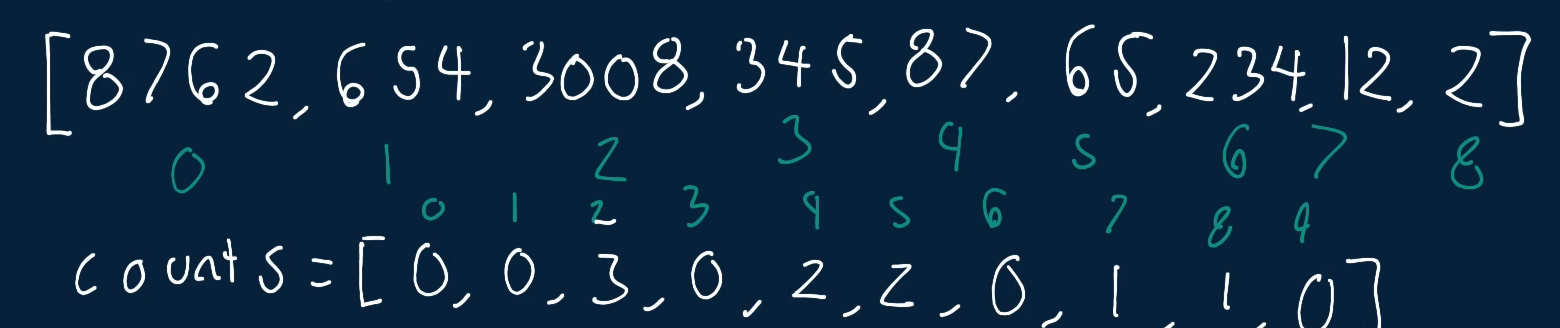 [8762, 654, 3008, 345, 87, 65, 234, 12, 2]
0 1 2 3 4 5 6 7 8
0 1 2 3 4 5 6 7 8 9
counts = [0, 0, 3, 0, 2, 2, 0, 1, 1, 0]